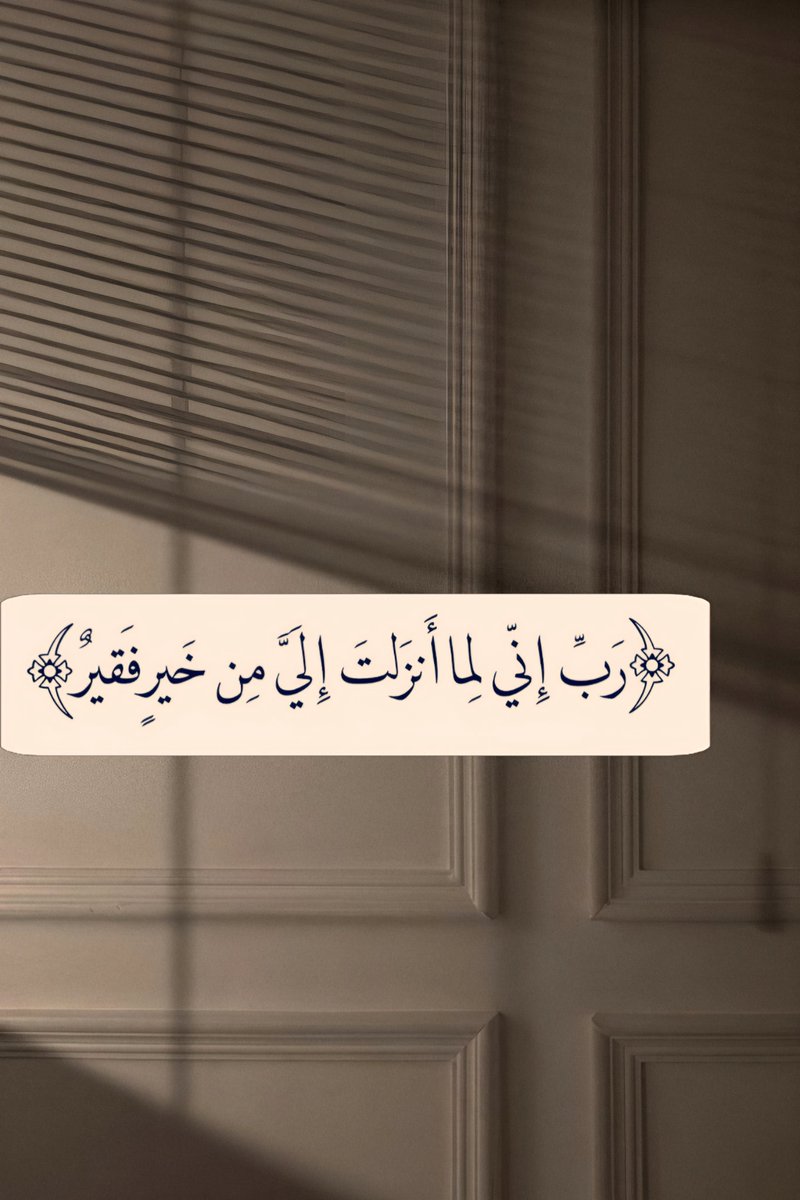 ﴿رَبِّ إِنّي لِما أَنزَلتَ إِلَيَّ مِن خَيرٍ فَقيرٌ﴾